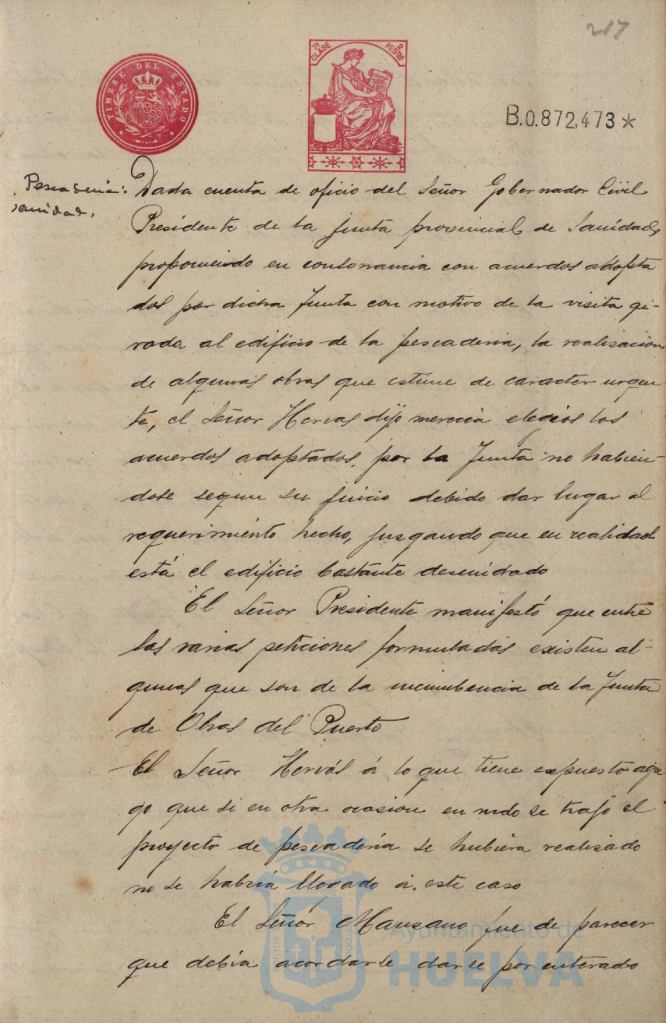 217
TIMBRE DEL ESTADO
7ª CLASE 2 PESETAS
B.0.872,473*
Pescaderia:
sanidad.
Dada cuenta de oficio del Señor Gobernador Civil
Presidente de la Junta provincial de Sanidad,
proponiendo en consonancia con acuerdos adopta
dos por dicha Junta con motivo de la visita gi-
rada al edificio de la pescaderia, la realizacion
de algunas obras que estime de caracter urgen
te, el Señor Hervas dijo merecia elogios los
acuerdos adoptados, por la Junta no habien-
dose segun su juicio debido dar lugar al
requerimiento hecho, juzgando que en realidad
está el edificio bastante descuidado
El Señor Presidente manifestó que entre
las varias peticiones formuladas existen al-
gunas que son de la incumbencia de la Junta
de Obras del Puerto
El Señor Hervás á lo que tiene expuesto agre
gó que si en otra ocasion en se trajo el
proyecto de pescadería se hubiera realizado
no se habria llegado á este caso
El Señor Manzano fue de parecer
que debia acordarse darse por enterado
Ayuntamiento de
HUELVA